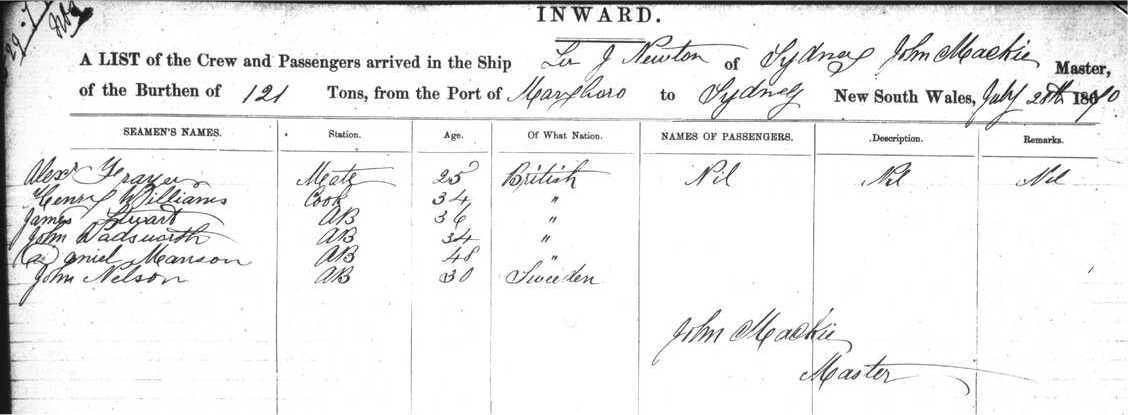 29-7
INWARD.
A LIST of the Crew and Passengers arrived in the Ship Sir J Newton of Sydney John Mackie Master,
of the Burthen of 121 Tons, from the Port of Maryboro to Sydney New South Wales, July 28th 1870
SEAMEN'S NAMES. Station. Age. Of What Nation. NAMES OF PASSENGERS. Description. Remarks.
Alexr Frayer Mate 25 British Nil Nil Nil
Henry Williams Cook 34 "
James Stuart AB 36 "
John Wadsworth AB 34 "
Daniel Manson AB 48 "
John Nelson AB 30 Sweeden
John Mackie
Master